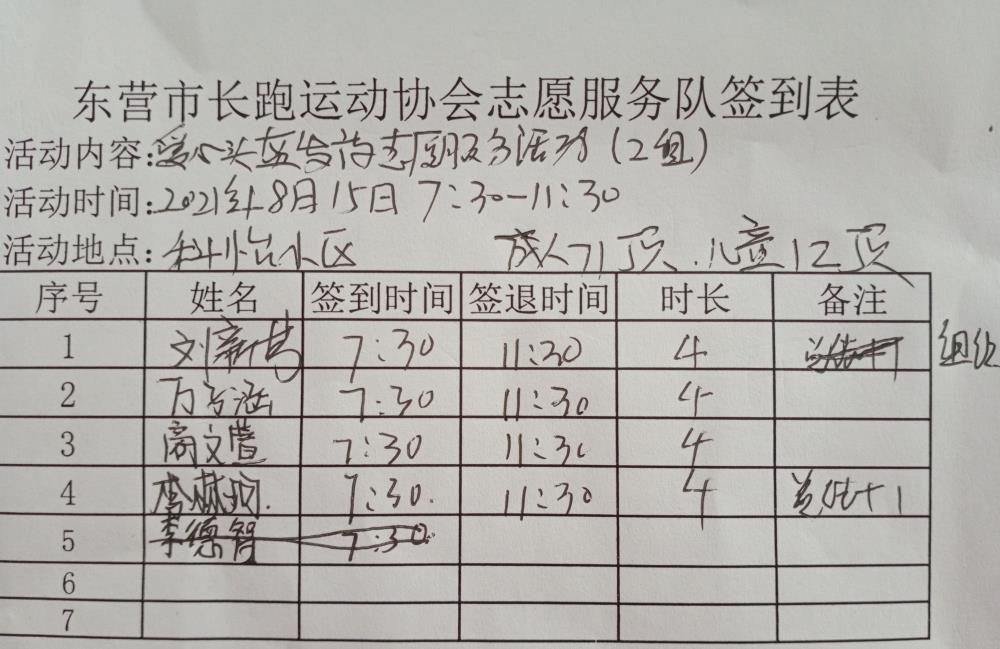 东营市长跑运动协会志愿服务队签到表
活动内容:爱心头盔发放志愿服务活动(2组)
活动时间:2021年8月15日 7:30-11:30
活动地点:科怡小区 成人71顶、儿童12顶
序号 姓名 签到时间 签退时间 时长 备注
1 刘新 7:30 11:30 4 组织
2 万 涵 7:30 11:30 4
3 高文萱 7:30 11:30 4
4 李 7:30. 11:30 4 总结+1
5 李德智 7:30
6
7